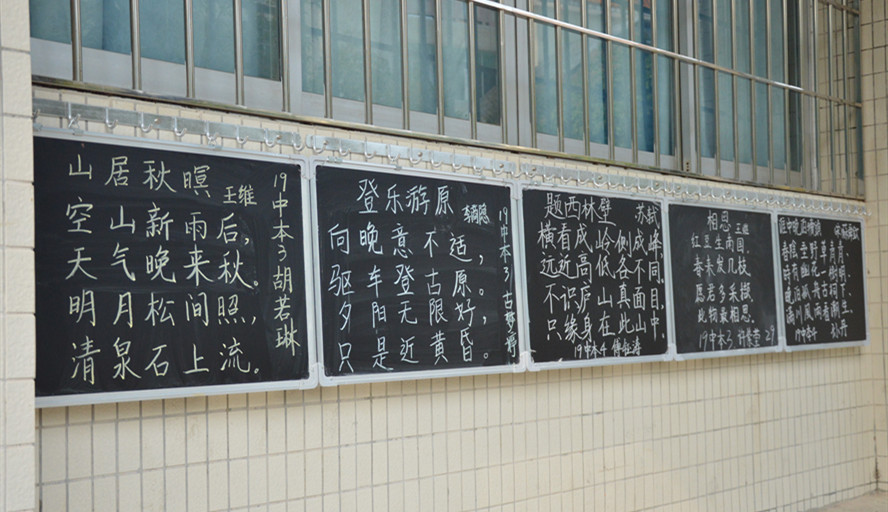 山居秋暝
王维
空山新雨后，
天气晚来秋。
明月松间照，
清泉石上流。
19中本3 胡若琳
登乐游原
李商隐
向晚意不适，
驱车登古原。
夕阳无限好，
只是近黄昏。
19中本3 古梦婷
题西林壁
苏轼
横看成岭侧成峰，
远近高低各不同。
不识庐山真面目，
只缘身在此山中。
19中本4
相思
王维
红豆生南国，
春来发几枝。
愿君多采撷，
此物最相思。
19中本3
29
春阴垂野草青青，
时有幽花一树明。
晚泊孤舟古祠下，
满川风雨看潮生。